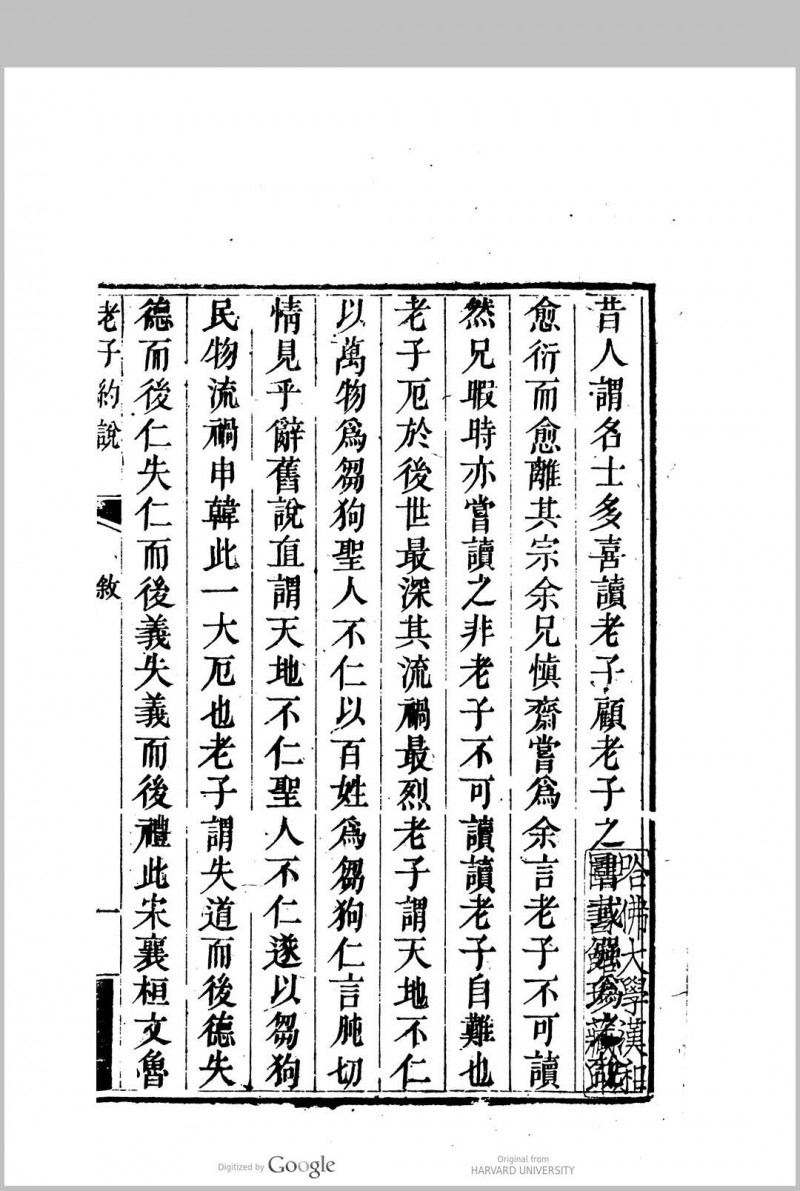 昔人謂名士多喜讀老子顧老子之書或強為之說
愈衍而愈離其宗余兄慎齋嘗為余言老子不可讀
然兄暇時亦嘗讀之非老子不可讀讀老子自難也
老子厄於後世最深其流禍最烈老子謂天地不仁
以萬物為芻狗聖人不仁以百姓為芻狗仁言肫切
情見乎辭舊說直謂天地不仁聖人不仁遂以芻狗
民物流禍申韓此一大厄也老子謂失道而後德失
德而後仁失仁而後義失義而後禮此宋襄桓文魯
老子約說
敘
一
哈佛大學漢和
圖書館珍藏印
Digitized by Google
Original from
HARVARD UNIVERSITY